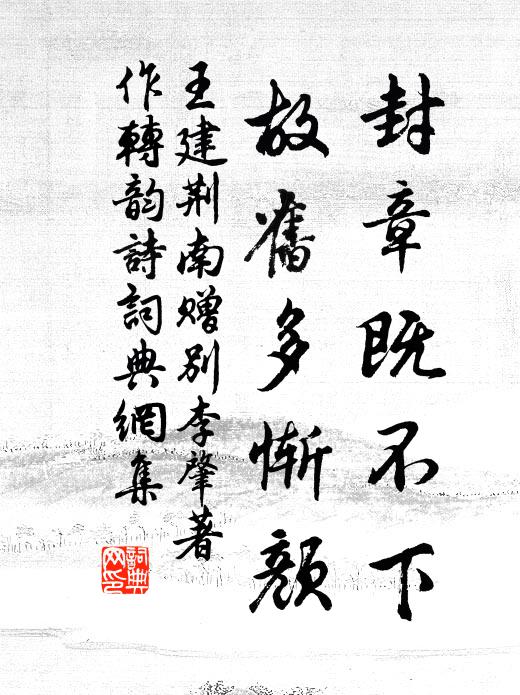 封章既不下
故舊多慚顔
王建荆南贈别李肇著
作轉韵詩詞典網集
詞典
网印